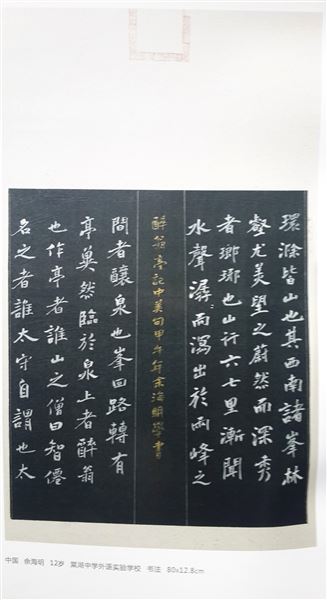 環滁皆山也其西南諸峯林
壑尤美望之蔚然而深秀
者瑯琊也山行六七里漸聞
水聲潺〻而瀉出於兩峰之
醉翁亭記中美句甲午年余海明學書
間者釀泉也峯回路轉有
亭翼然臨於泉上者醉翁
也作亭者誰山之僧曰智僊
名之者誰太守自謂也太
中国 余海明 12岁 棠湖中学外语实验学校 书法 80x12.8cm